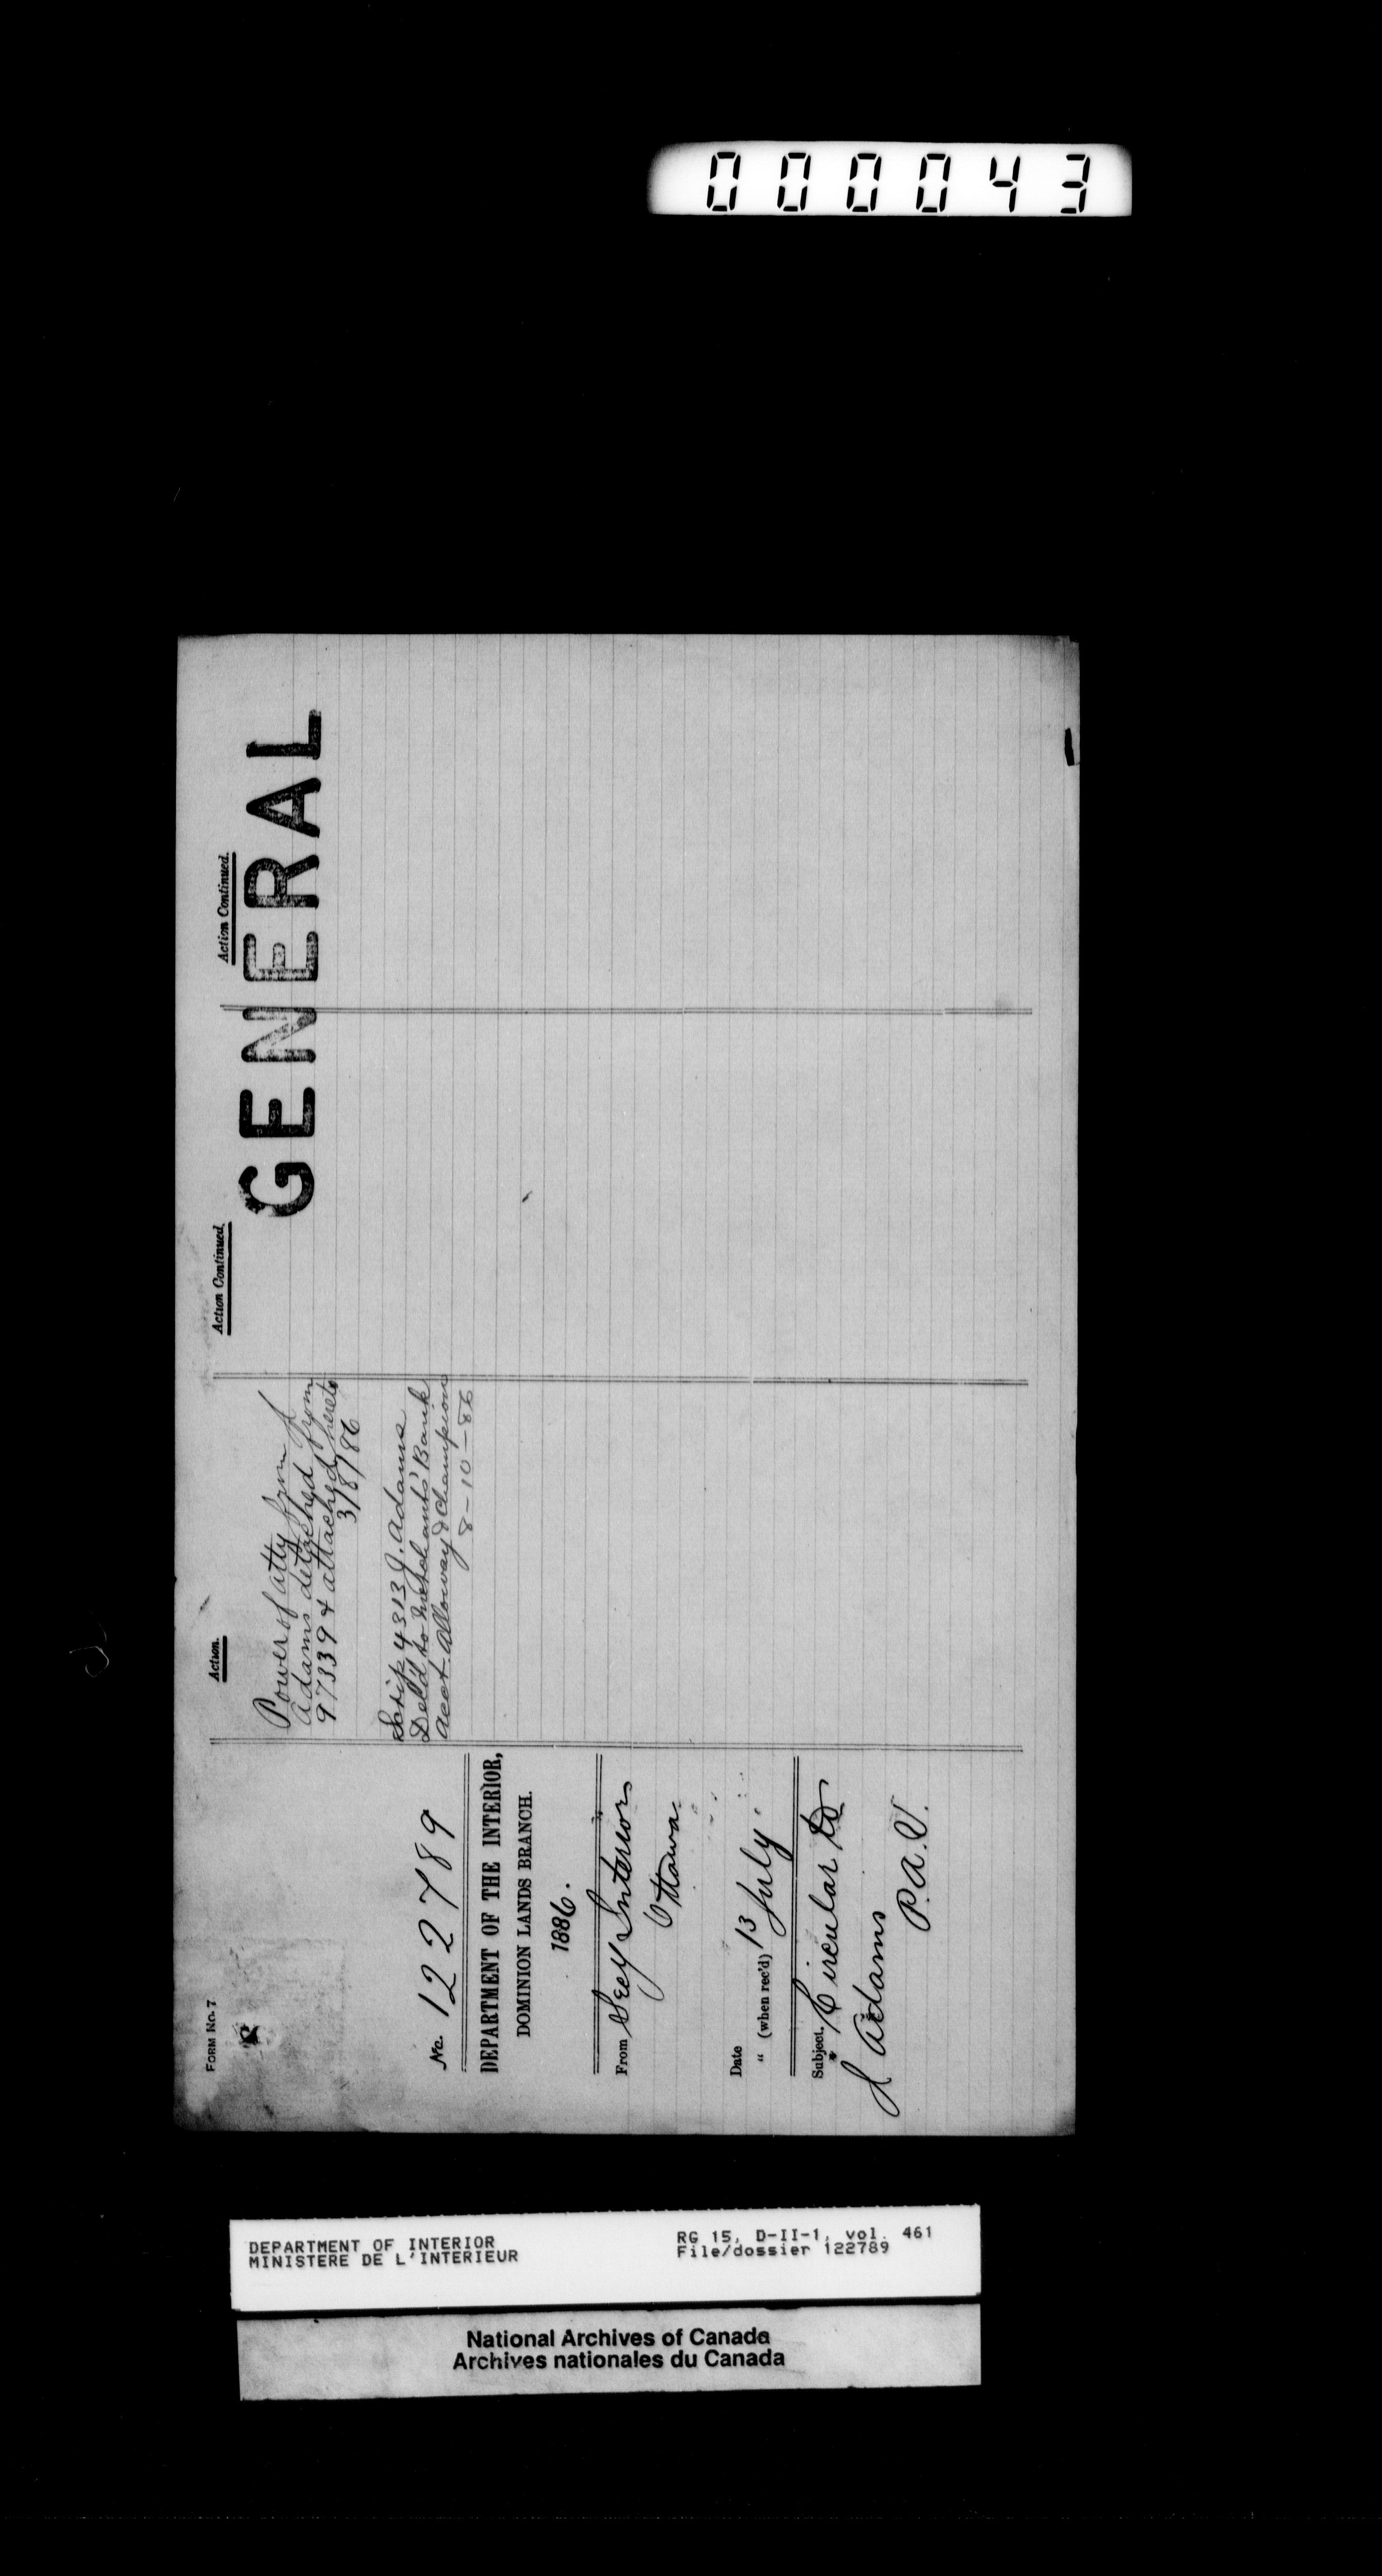 000043
FORM No. 7
No. 122789
DEPARTMENT OF THE INTERIOR,
DOMINION LANDS BRANCH.
1886.
From Secy Interior
Ottawa.
Date 13 July.
" (when rec'd)
Subject. Circular to
J Adams
P.A.V.
Action.
Power of atty from J
Adams detached from
97339 & attached hereto
3/8/86
Scrip 4313 J. Adams
Del'd to Merchants' Bank
acct Alloway & Champion
8-10-86
Action Continued.
Action Continued.
GENERAL
DEPARTMENT OF INTERIOR
MINISTERE DE L'INTERIEUR
RG 15, D-II-1, vol. 461
File/dossier 122789
National Archives of Canada
Archives nationales du Canada